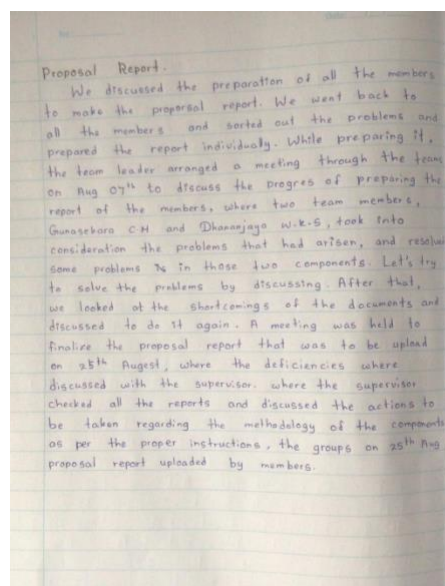 Proposal Report.
We discussed the preparation of all the members
to make the proporsal report. We went back to
all the members and sorted out the problems and
prepared the report individually. While preparing it,
the team leader arranged a meeting through the team
on Aug 07th to discuss the progres of preparing the
report of the members, where two team members,
Gunasekara C H and Dhananjaya W.K.S, took into
consideration the problems that had arisen, and resolve
some problems in those two components. Let's try
to solve the problems by discussing. After that,
we looked at the shortcomings of the documents and
discussed to do it again. A meeting was held to
finalize the proposal report that was to be upload
on 25th Augest, where the deficiencies where
discussed with the supervisor. where the supervisor
checked all the reports and discussed the actions to
be taken regarding the methodology of the components
as per the proper instructions, the groups on 25th Aug
proposal report uploaded by members.